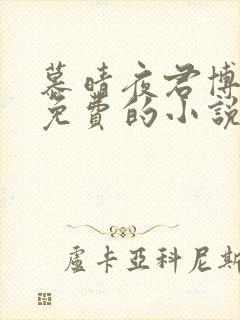 慕晴夜君博
免費的小說
盧卡亞科尼斯